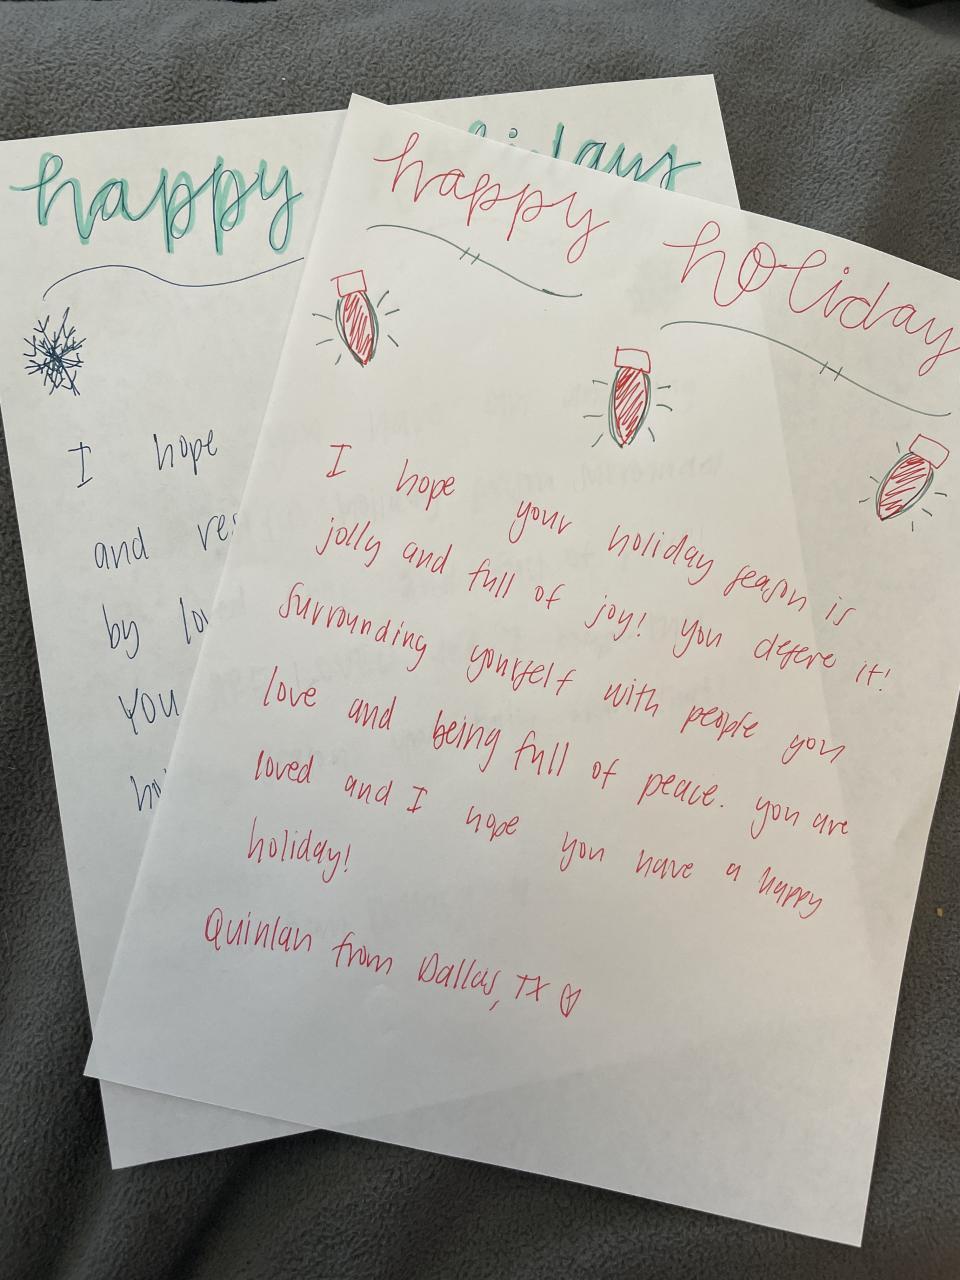 happy holidays
I hope
and res
by lov
You
hol
happy holiday
I hope your holiday season is
jolly and full of joy! You desere it!
Surrounding yourself with people you
love and being full of peace. you are
loved and I hope you have a happy
holiday!
Quinlan from Dallas, TX